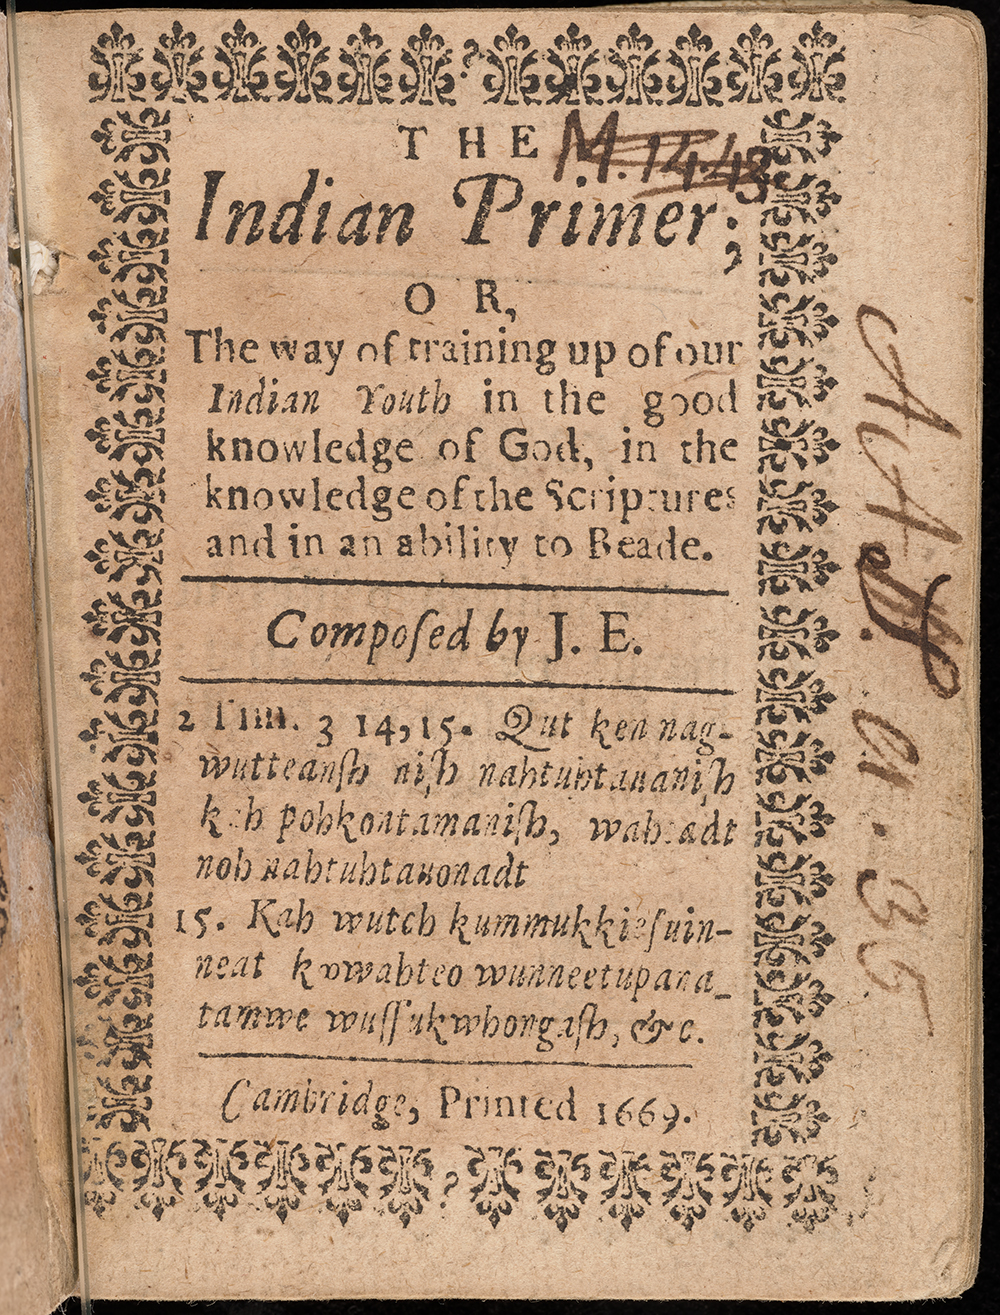 THE
M. 14.43
Indian Primer;
OR,
The way of training up of our
Indian Youth in the good
knowledge of God, in the
knowledge of the Scriptures
and in an ability to Reade.
Composed by J. E.
2 Tim. 3 14, 15. Qut ken nag-
wutteanſh niſh nahtuhtauaniſh
kah pohkontamaniſh, wahēadt
noh nahtuhtauonadt
15. Kah wutch kummukkieſuin-
neat kꝏwahteo wunneetupana_
tamwe wuſſukwhongaſh, &c.
Cambridge, Printed 1669.